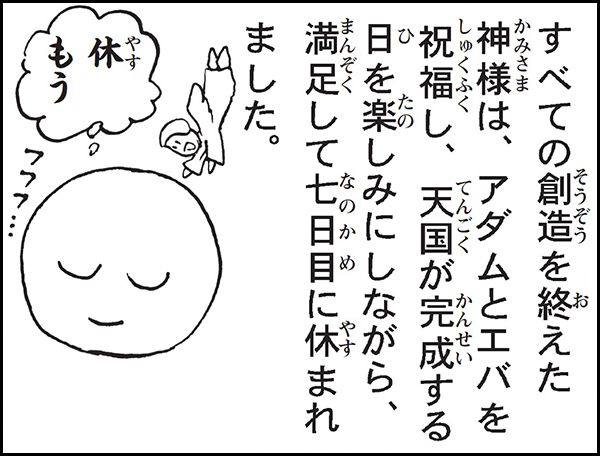 すべての創造を終えた
神様は、アダムとエバを
祝福し、天国が完成する
日を楽しみにしながら、
満足して七日目に休まれ
ました。
休
もう
フフフ…